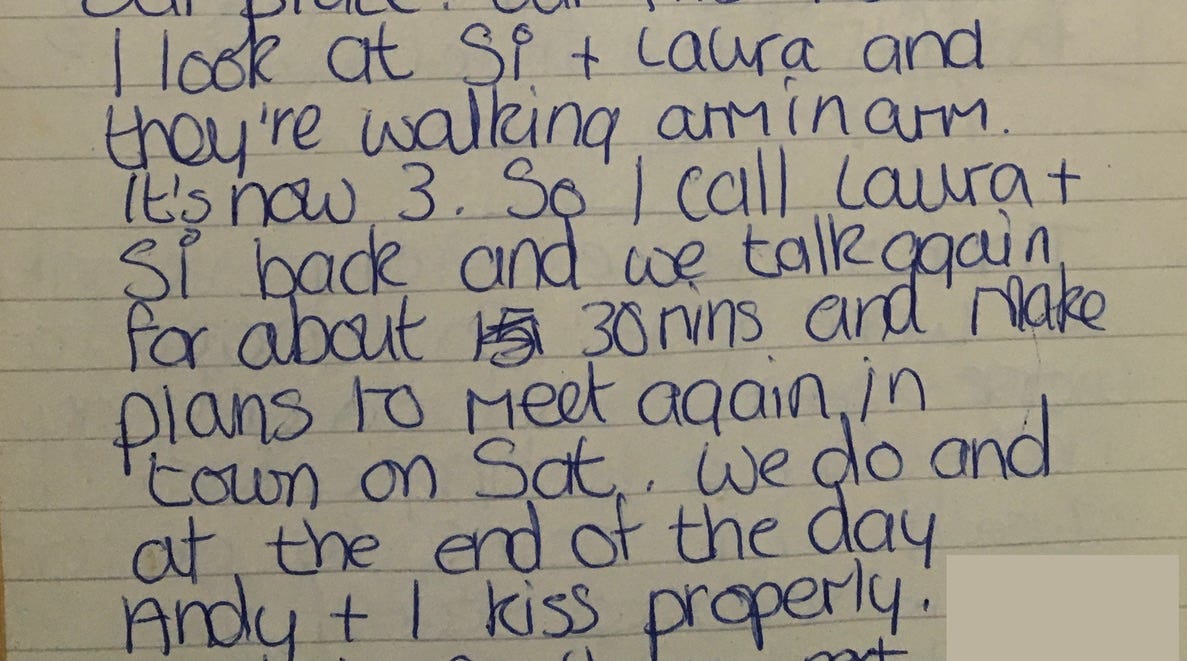 I look at Si + Laura and
they're walking arm in arm.
It's now 3. So I call Laura +
Si back and we talk again
for about 30 mins and make
plans to meet again, in
town on Sat.. We do and
at the end of the day
Andy + I kiss properly.